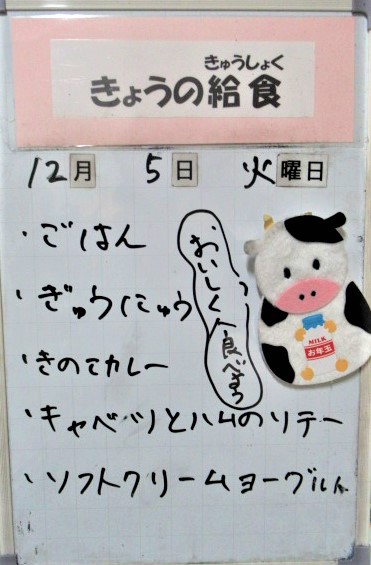 きゅうしょく
きょうの給食
12月 5日 火曜日
・ごはん
・ぎゅうにゅう
・きのこカレー
・キャベツとハムのソテー
・ソフトクリームヨーグルト
おいしく
食べよう
MILK
お年玉